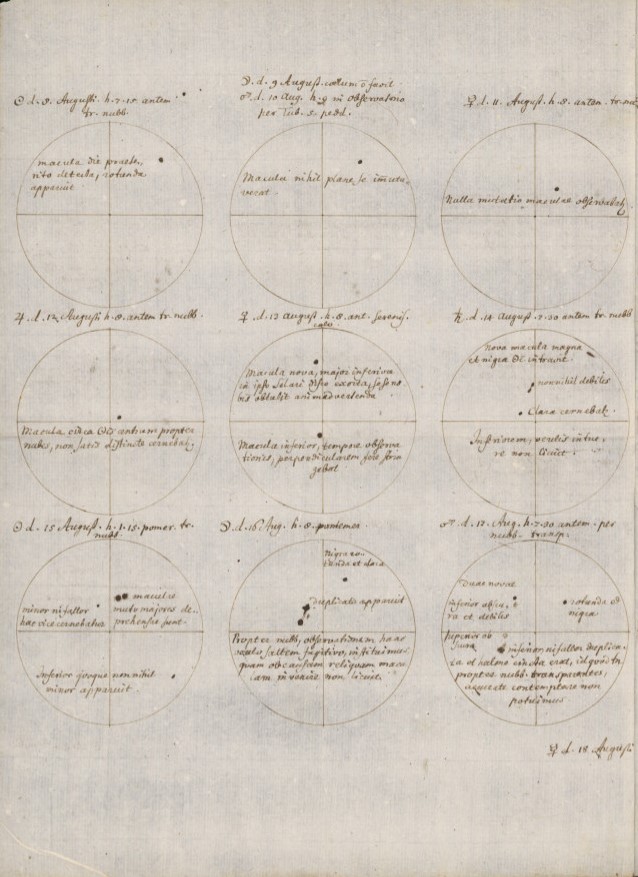 ☉ d. 8. Augusti. h. 7. 15. antem
tr. nubb.
macula die praete-
rito detecta, rotunda
apparuit
☽. d. 9 August. cœlum
♂. d. 10 Aug. h. 8 in observatorio
per Tub. 5. ped.
Macula nihil plane se immuta-
verat.
☿ d. 11. August. h. 8. antem. tr.
Nulla mutatio maculae observabat.
♃. d. 12. Augusti h. 8. antem tr. nubb.
Macula circa Ois centrum propter
nubes, non satis distincte cernebat.
♀. d. 13 August. h. 8. ant. serenis.
cœlo.
Macula nova, major inferiore
in ipso Solari disco exorta, sese no-
bis obtulit animadvertenda
Macula inferior, tempore observa-
tionis, perpendicularem fere
gebat
♄. d. 14 August. 7. 30 antem tr nubb
Nova macula magna
et nigra intravit.
nonnihil debiles
Clara cernebat.
Inferiorem, oculis intue-
re non licuit.
☉ d. 15 August. h. 1. 15. pomer. tr.
nubb.
maculae
multo majores de-
prehensae sunt.
minor ni fallor
hac vice cernebatur
Inferior quoque nonnihil
minor apparuit.
☽. d. 16 Aug. h. 8.
Nigra ro-
tunda et clara
duplicata apparuit
Propter nubb. observationem hanc
oculo saltem fugitivo, instituimus.
quam ob causam reliquam macu-
lam invenire non licuit.
♂. d. 17. Aug. h. 7. 30 antem. per
nubb. transp.
duae novae
inferior obscu-
ra et debiles
rotunda et
nigra
superior ob
scura
inferior ni fallor duplica-
ta et halone cincta erat, id quod tn
propter nubb. transparentes,
accurate contemplare non
potuimus
☿ d. 18 Augusti